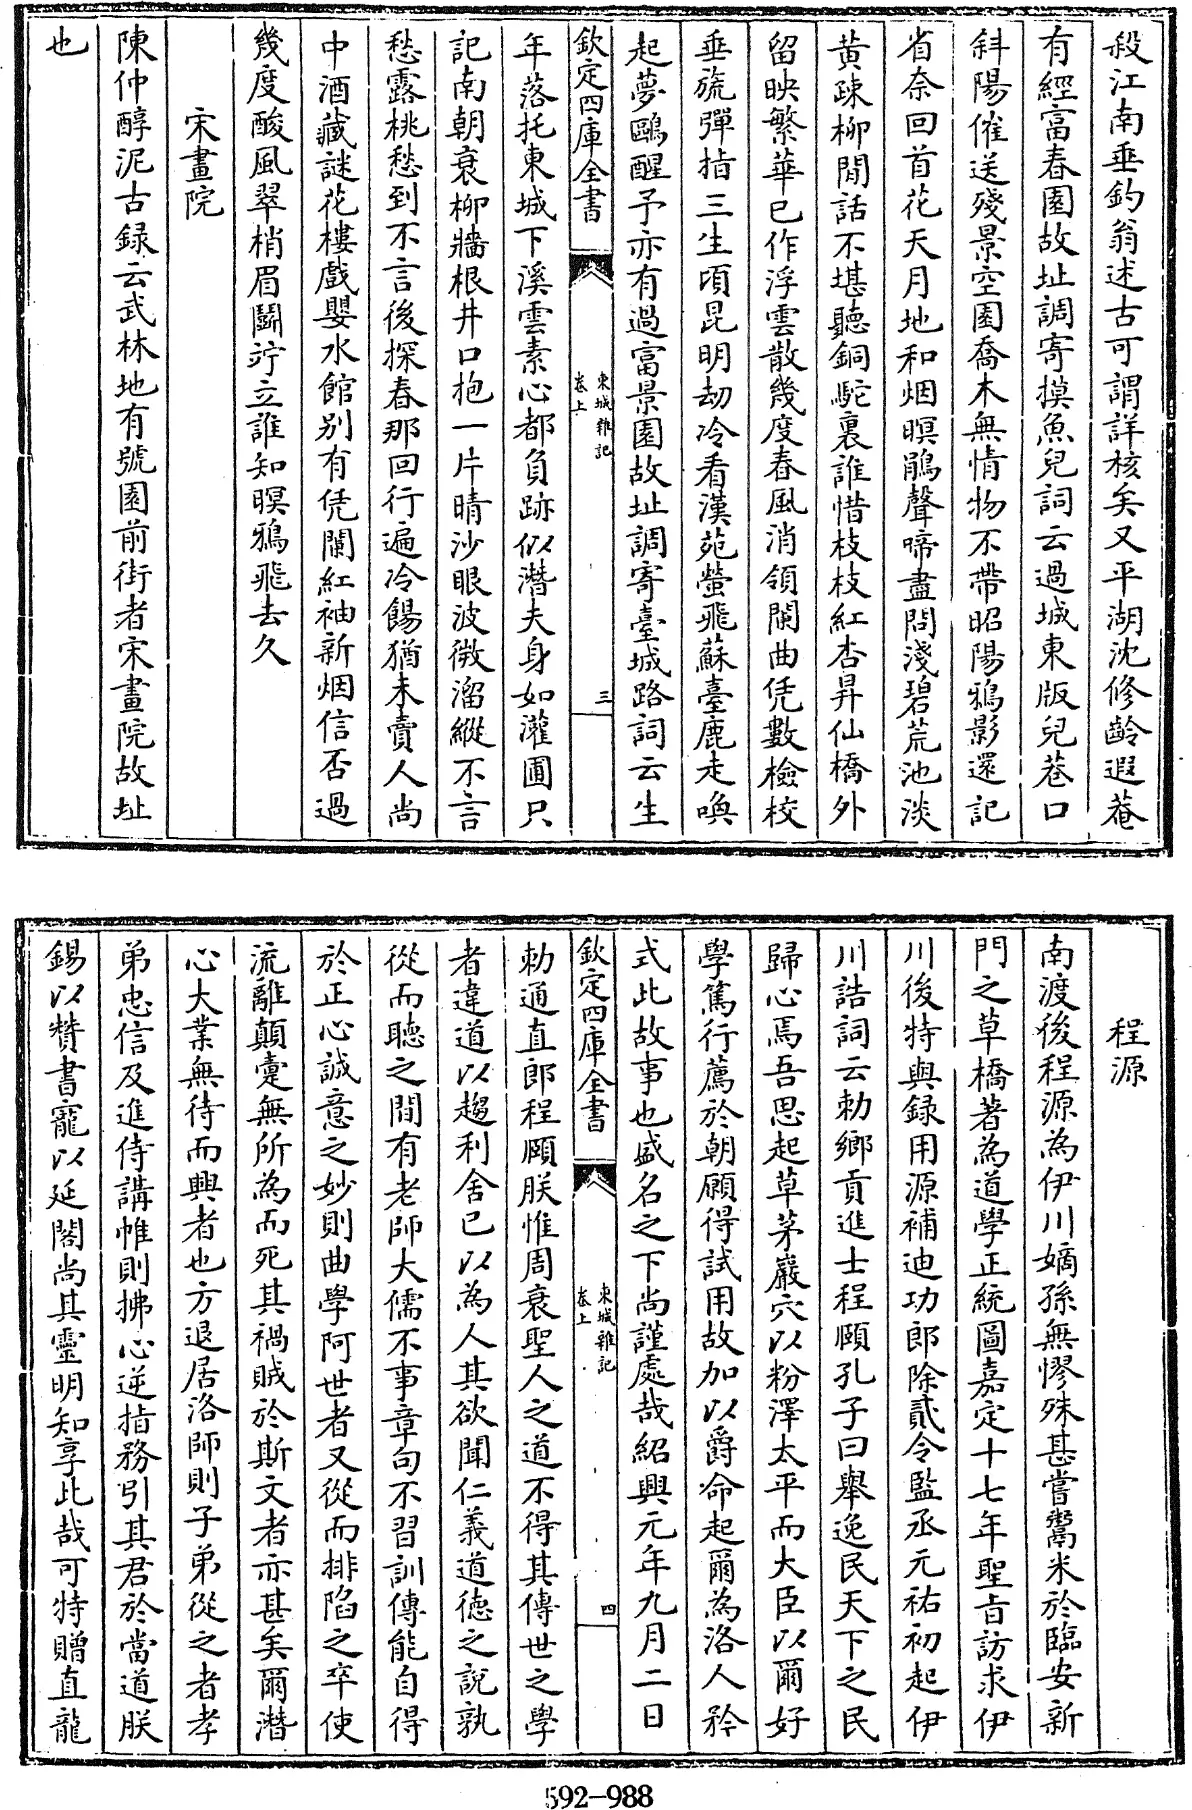 殺江南垂釣翁述古可謂詳核矣又平湖沈修齡遐菴
有經富春園故址調寄摸魚兒詞云過城東版兒巷口
斜陽催送殘景空園喬木無情物不帶昭陽鴉影還記
省奈回首花天月地和烟暝鵑聲啼盡問淺碧荒池淡
黄疎柳閒話不堪聽銅駝裏誰惜枝枝紅杏昇仙橋外
留映繁華已作浮雲散幾度春風消領闌曲凭數檢校
垂旒彈指三生頃昆明劫冷看漢苑螢飛蘇臺鹿走喚
起夢鷗醒予亦有過富景園故址調寄臺城路詞云生
欽定四庫全書
東城雜記
卷上
三
年落托東城下溪雲素心都負跡似潛夫身如灌圃只
記南朝衰柳牆根井口抱一片晴沙眼波微溜縱不言
愁露桃愁到不言後探春那回行遍冷餳猶未賣人尚
中酒藏謎花樓戲嬰水館别有凭闌紅袖新烟信否過
幾度酸風翠梢眉鬬竚立誰知暝鴉飛去久
宋畫院
陳仲醇泥古録云武林地有號園前街者宋畫院故址
也
程源
南渡後程源為伊川嫡孫無憀殊甚嘗鬻米於臨安新
門之草橋著為道學正統圖嘉定十七年聖旨訪求伊
川後特與録用源補迪功郎除貳令監丞元祐初起伊
川誥詞云勅鄉貢進士程頤孔子曰舉逸民天下之民
歸心焉吾思起草茅巖穴以粉澤太平而大臣以爾好
學篤行薦於朝願得試用故加以爵命起爾為洛人矜
式此故事也盛名之下尚謹處哉紹興元年九月二日
欽定四庫全書
東城雜記
卷上
四
勅通直郎程頤朕惟周衰聖人之道不得其傳世之學
者違道以趨利舍已以為人其欲聞仁義道德之說孰
從而聽之間有老師大儒不事章句不習訓傳能自得
於正心誠意之妙則曲學阿世者又從而排陷之卒使
流離顛躓無所為而死其禍賊於斯文者亦甚矣爾潛
心大業無待而興者也方退居洛師則子弟從之者孝
弟忠信及進侍講帷則拂心逆指務引其君於當道朕
錫以贊書寵以延閣尚其靈明知享此哉可特贈直龍
592-988